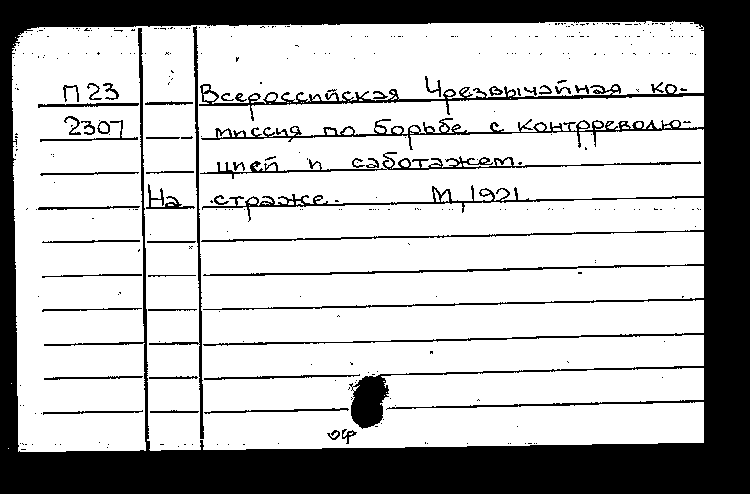 П 23 Всероссийская Чрезвычайная ко-
2307 миссия по борьбе с контрреволю-
цией и саботажем.
На страже. М, 1921.
оф